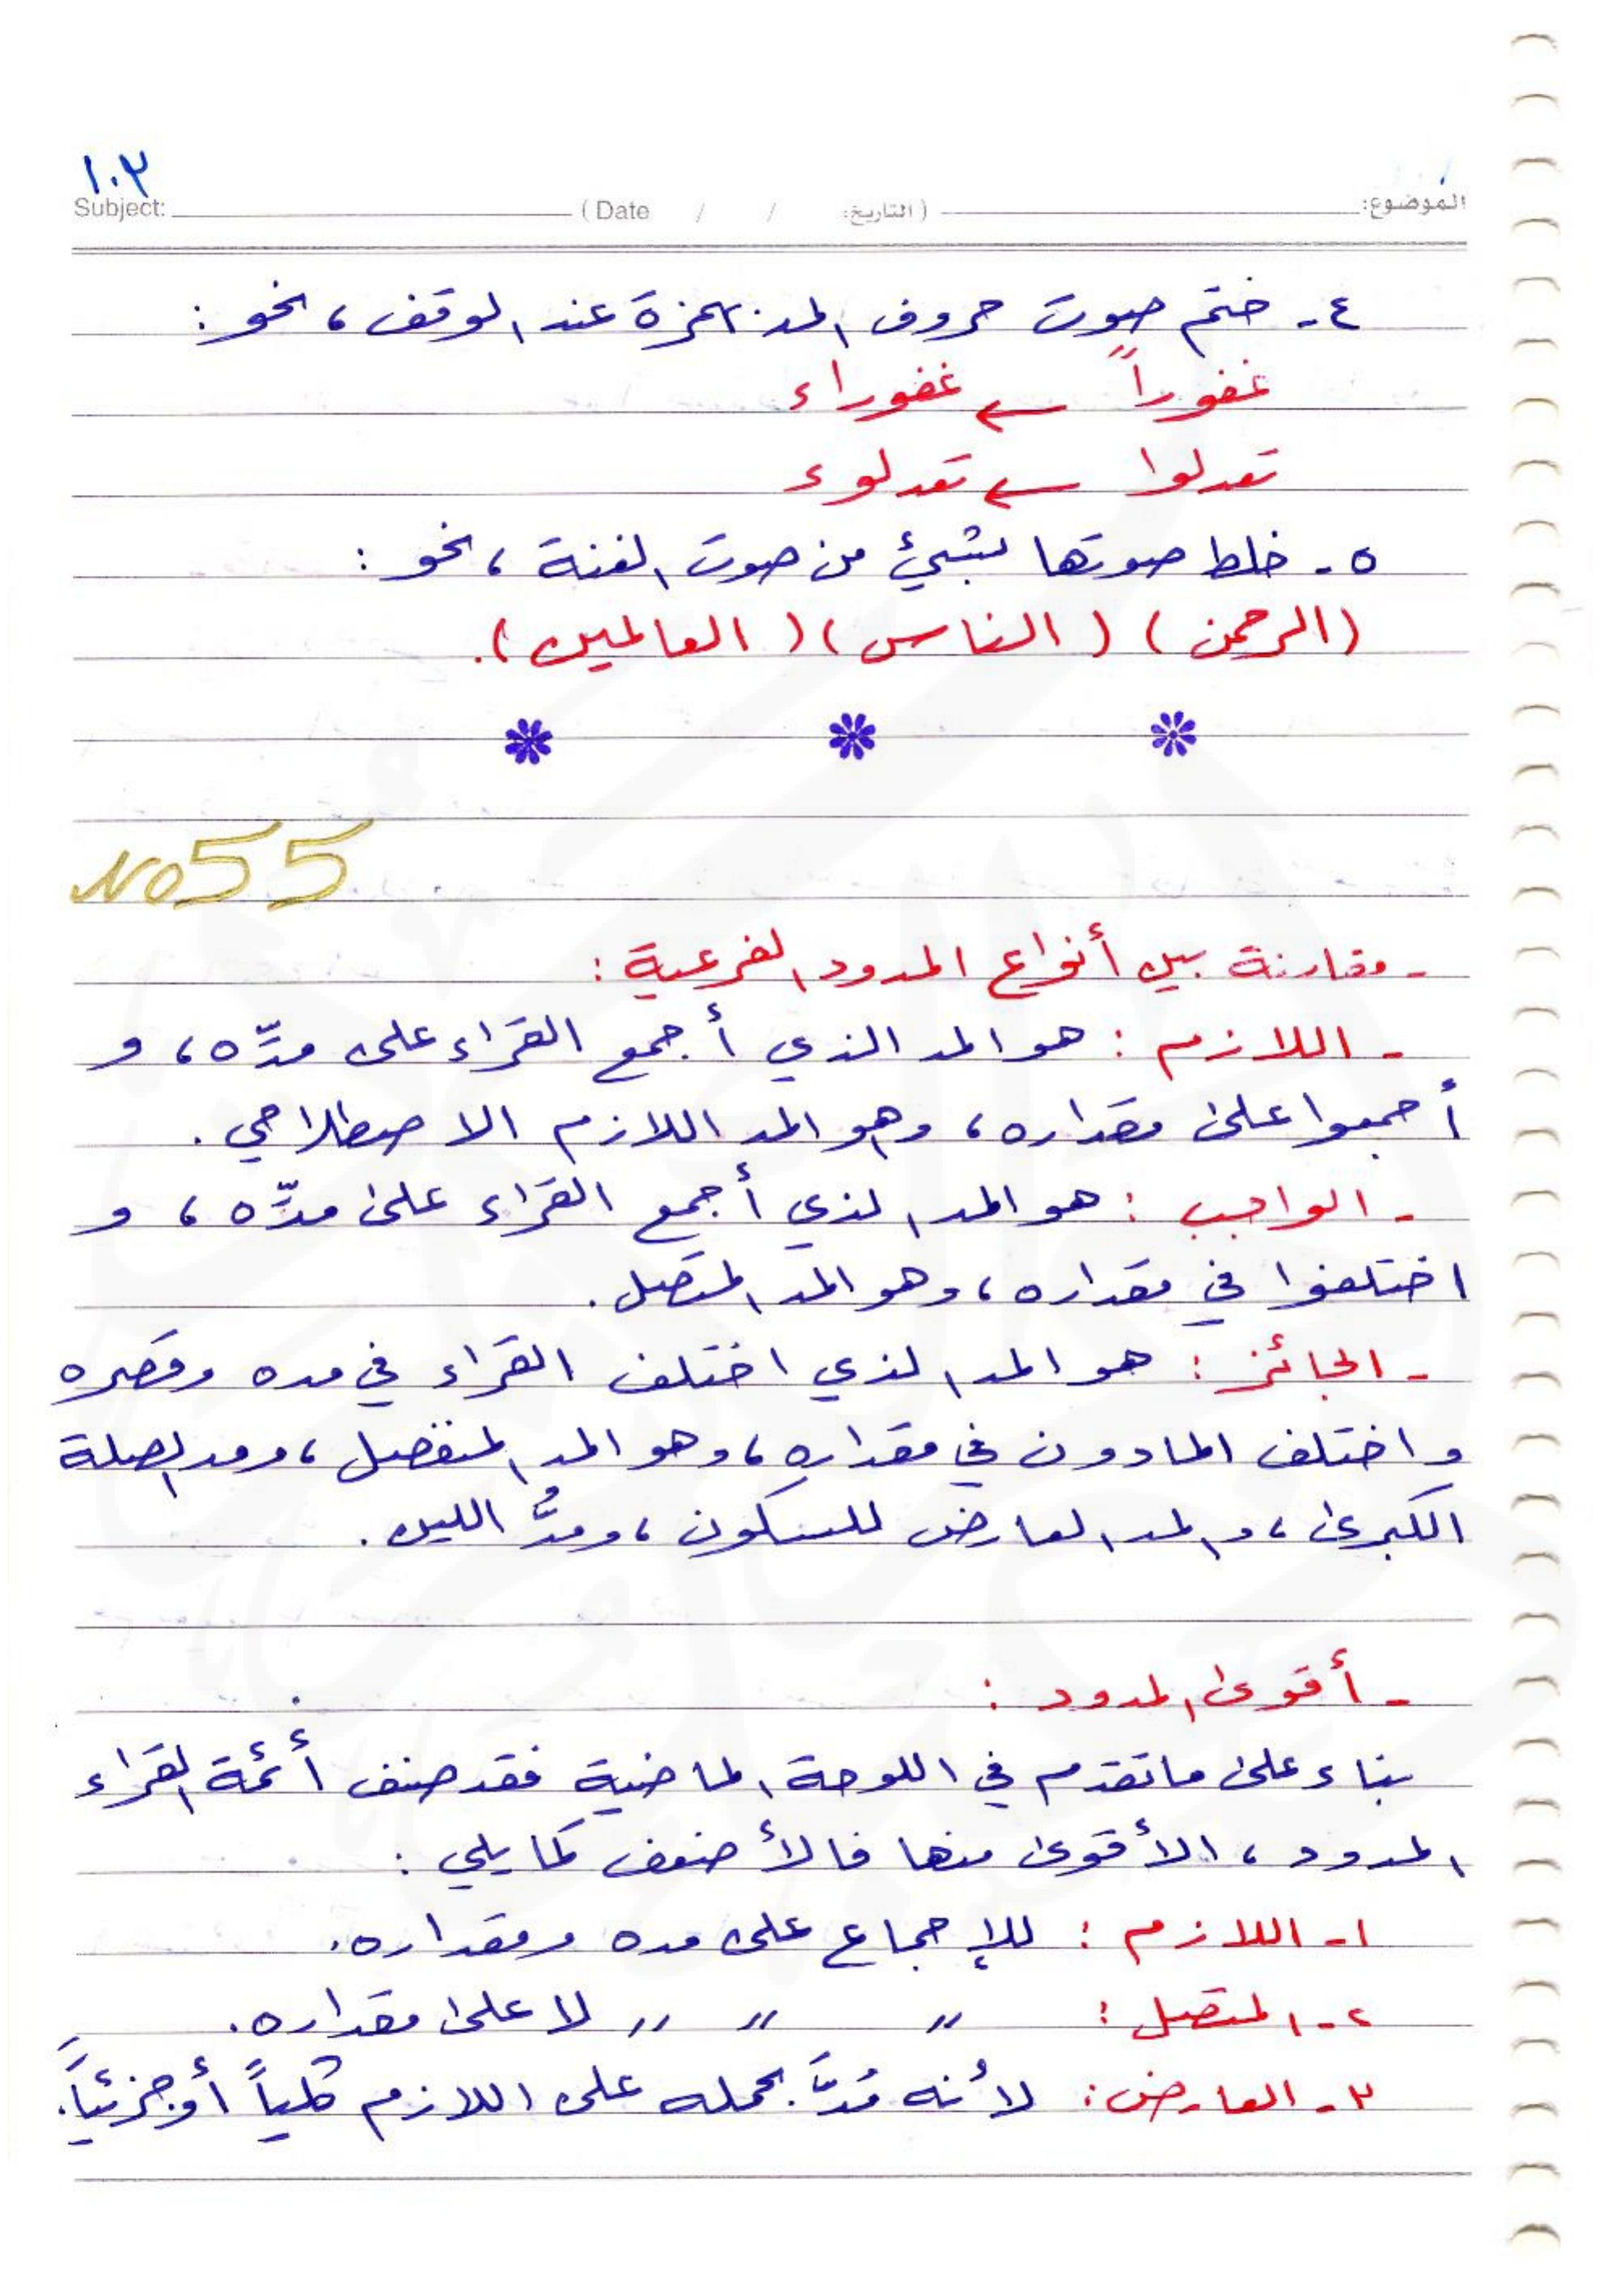 ١٠٣
الموضوع: (التاريخ: / / Date ) Subject:
٤- ختم صوت حروف المد بهمزة عند الوقف، نحو:
غفوراً ← غفوراء
تعدلوا ← تعدلوء
٥- خلط صوتها بشيئ من صوت الغنة، نحو:
(الرحمن) (الناس) (العالمين).
No 55
- مقارنة بين أنواع المدود الفرعية:
- اللازم: هو المد الذي أجمع القراء على مدّه، و
أجمعوا على مقداره، وهو المد اللازم الاصطلاحي.
- الواجب: هو المد الذي أجمع القراء على مدّه، و
اختلفوا في مقداره، وهو المد المتصل.
- الجائز: هو المد الذي اختلف القراء في مده وقصره
و اختلف المادون في مقداره، وهو المد المنفصل، ومد الصلة
الكبرى، والمد العارض للسكون، ومدُّ اللين.
- أقوى المدود:
بناء على ما تقدم في اللوحة الماضية فقد صنف أئمة القراء
المدود، الأقوى منها فالأضعف كما يلي:
١- اللازم: للإجماع على مده ومقداره.
٢- المتصل: " " " لا على مقداره.
٣- العارض: لأنه مُدَّ بحمله على اللازم كلياً أو جزئياً.